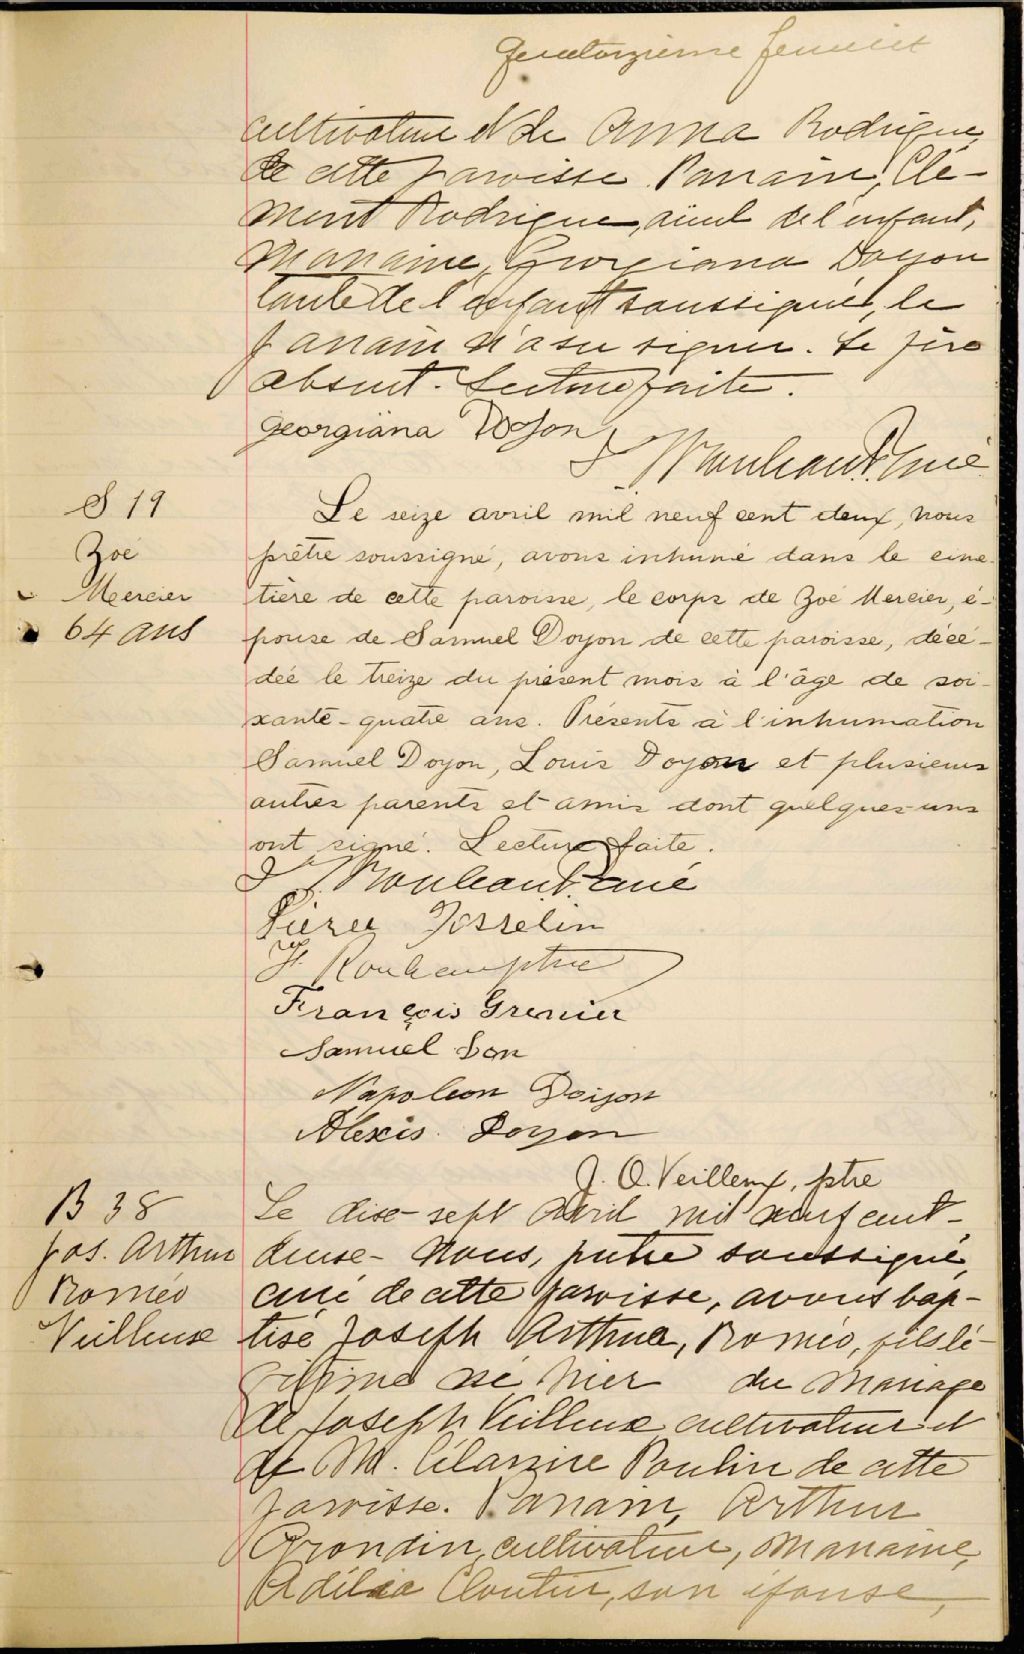 Quatorzième feuillet
cultivateur et de Anna Rodrigue,
de cette paroisse. Parrain, Clé-
ment Rodrigue, aïeul de l'enfant,
Marraine, Georgiana Doyon
tante de l'enfant soussignée, le
parrain n'a su signer. Le père
absent. Lecture faite.
Georgiana Doyon
Rouleau Ptre Curé
S 19
Zoé
Mercier
64 ans
Le seize avril mil neuf cent deux, nous
prêtre soussigné, avons inhumé dans le cime-
tière de cette paroisse, le corps de Zoé Mercier, é-
pouse de Samuel Doyon de cette paroisse, décé-
déé le treize du présent mois à l'âge de soi-
xante-quatre ans. Présents à l'inhumation
Samuel Doyon, Louis Doyon et plusieurs
autres parents et amis dont quelques-uns
ont signé. Lecture faite.
Rouleau Ptre Curé
Pierre Josselin
Rouleau ptre
François Grenier
Samuel Don
Napoleon Doiyon
Alexis. Doyon
J. O. Veilleux, ptre
B 38
Jos. Arthur
Roméo
Veilleux
Le dix-sept Avril mil neuf cent-
deux- Nous, prêtre soussigné,
curé de cette paroisse, avons bap-
tisé Joseph Arthur, Roméo, fils lé-
gitime né hier du mariage
de Joseph Veilleux cultivateur et
de M. Célanire Poulin de cette
paroisse. Parrain, Arthur
Grondin, cultivateur, Marraine,
Adélia Cloutier, son épouse,